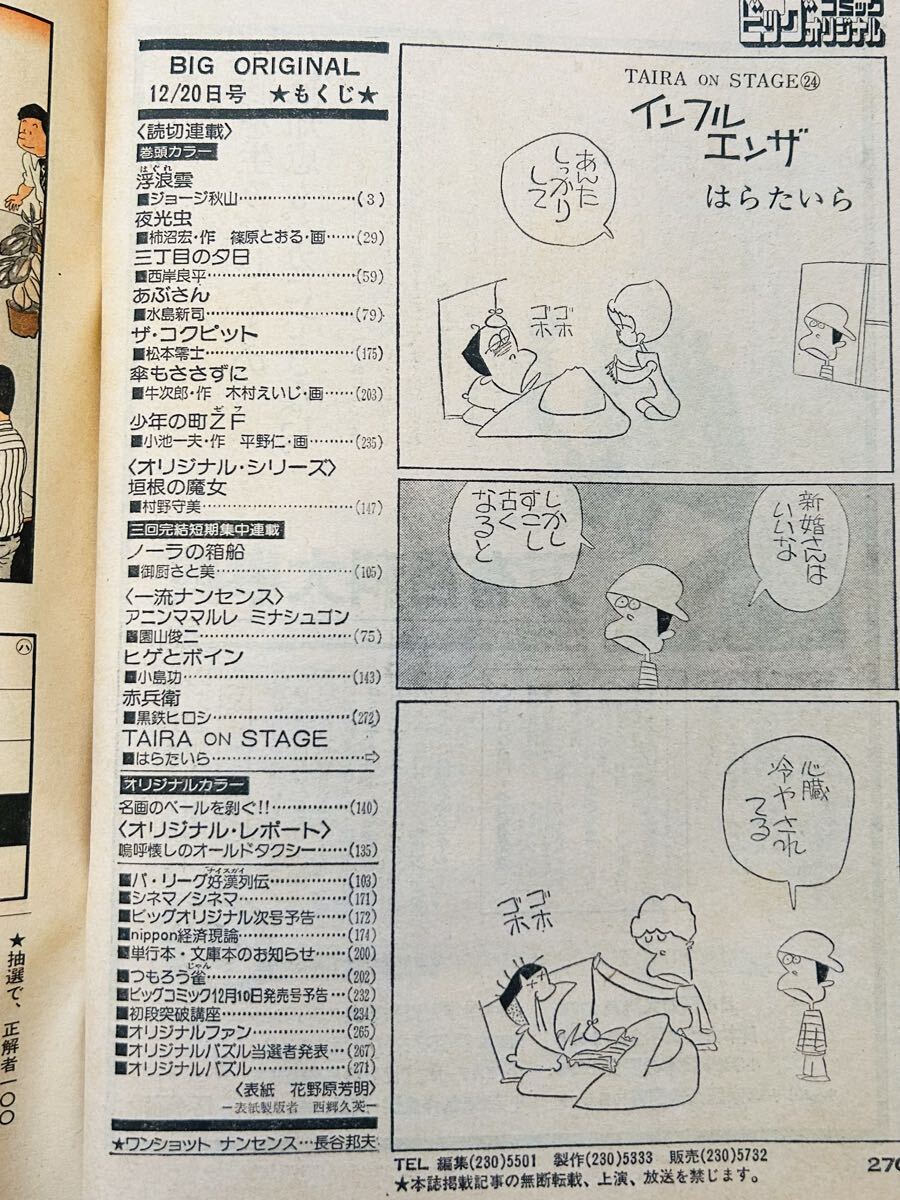 ビッグコミックオリジナル
BIG ORIGINAL
12/20日号 ★もくじ★
〈読切連載〉
巻頭カラー
はぐれ
浮浪雲
■ジョージ秋山……………(3)
夜光虫
■柿沼宏・作 篠原とおる・画……(29)
三丁目の夕日
■西岸良平…………………(59)
あぶさん
■水島新司…………………(79)
ザ・コクピット
■松本零士…………………(175)
傘もささずに
■牛次郎・作 木村えいじ・画…(203)
ゼフ
少年の町ZF
■小池一夫・作 平野仁・画………(235)
〈オリジナル・シリーズ〉
垣根の魔女
■村野守美…………………(147)
三回完結短期集中連載
ノーラの箱船
■御厨さと美………………(105)
〈一流ナンセンス〉
アニンママルレ ミナシュゴン
■園山俊二…………………(75)
ヒゲとボイン
■小島功……………………(143)
赤兵衛
■黒鉄ヒロシ………………(272)
TAIRA ON STAGE
■はらたいら………………⇨
オリジナルカラー
名画のベールを剥ぐ!!…………(140)
〈オリジナル・レポート〉
嗚呼懐しのオールドタクシー……(135)
ナイスガイ
■パ・リーグ好漢列伝……………(103)
■シネマ/シネマ…………………(171)
■ビッグオリジナル次号予告……(172)
■nippon経済現論………………(174)
■単行本・文庫本のお知らせ……(200)
じゃん
■つもろう雀………………………(202)
■ビッグコミック12月10日発売号予告…(232)
■初段突破講座……………………(234)
■オリジナルファン………………(265)
■オリジナルパズル当選者発表…(267)
■オリジナルパズル………………(271)
〈表紙 花野原芳明〉
─表紙製版者 西郷久英─
★ワンショット ナンセンス…長谷邦夫
TAIRA ON STAGE㉔
インフル
エンザ
はらたいら
あんた
しっかり
して
ゴホ
ゴホ
新婚さんは
いいな
しかし
すこし
古く
なると
心臓
冷やされ
てる
ゴホ
ゴホ
TEL 編集(230)5501 製作(230)5333 販売(230)5732
★本誌掲載記事の無断転載、上演、放送を禁じます。
270
ハ
★抽選で、正解者一〇〇